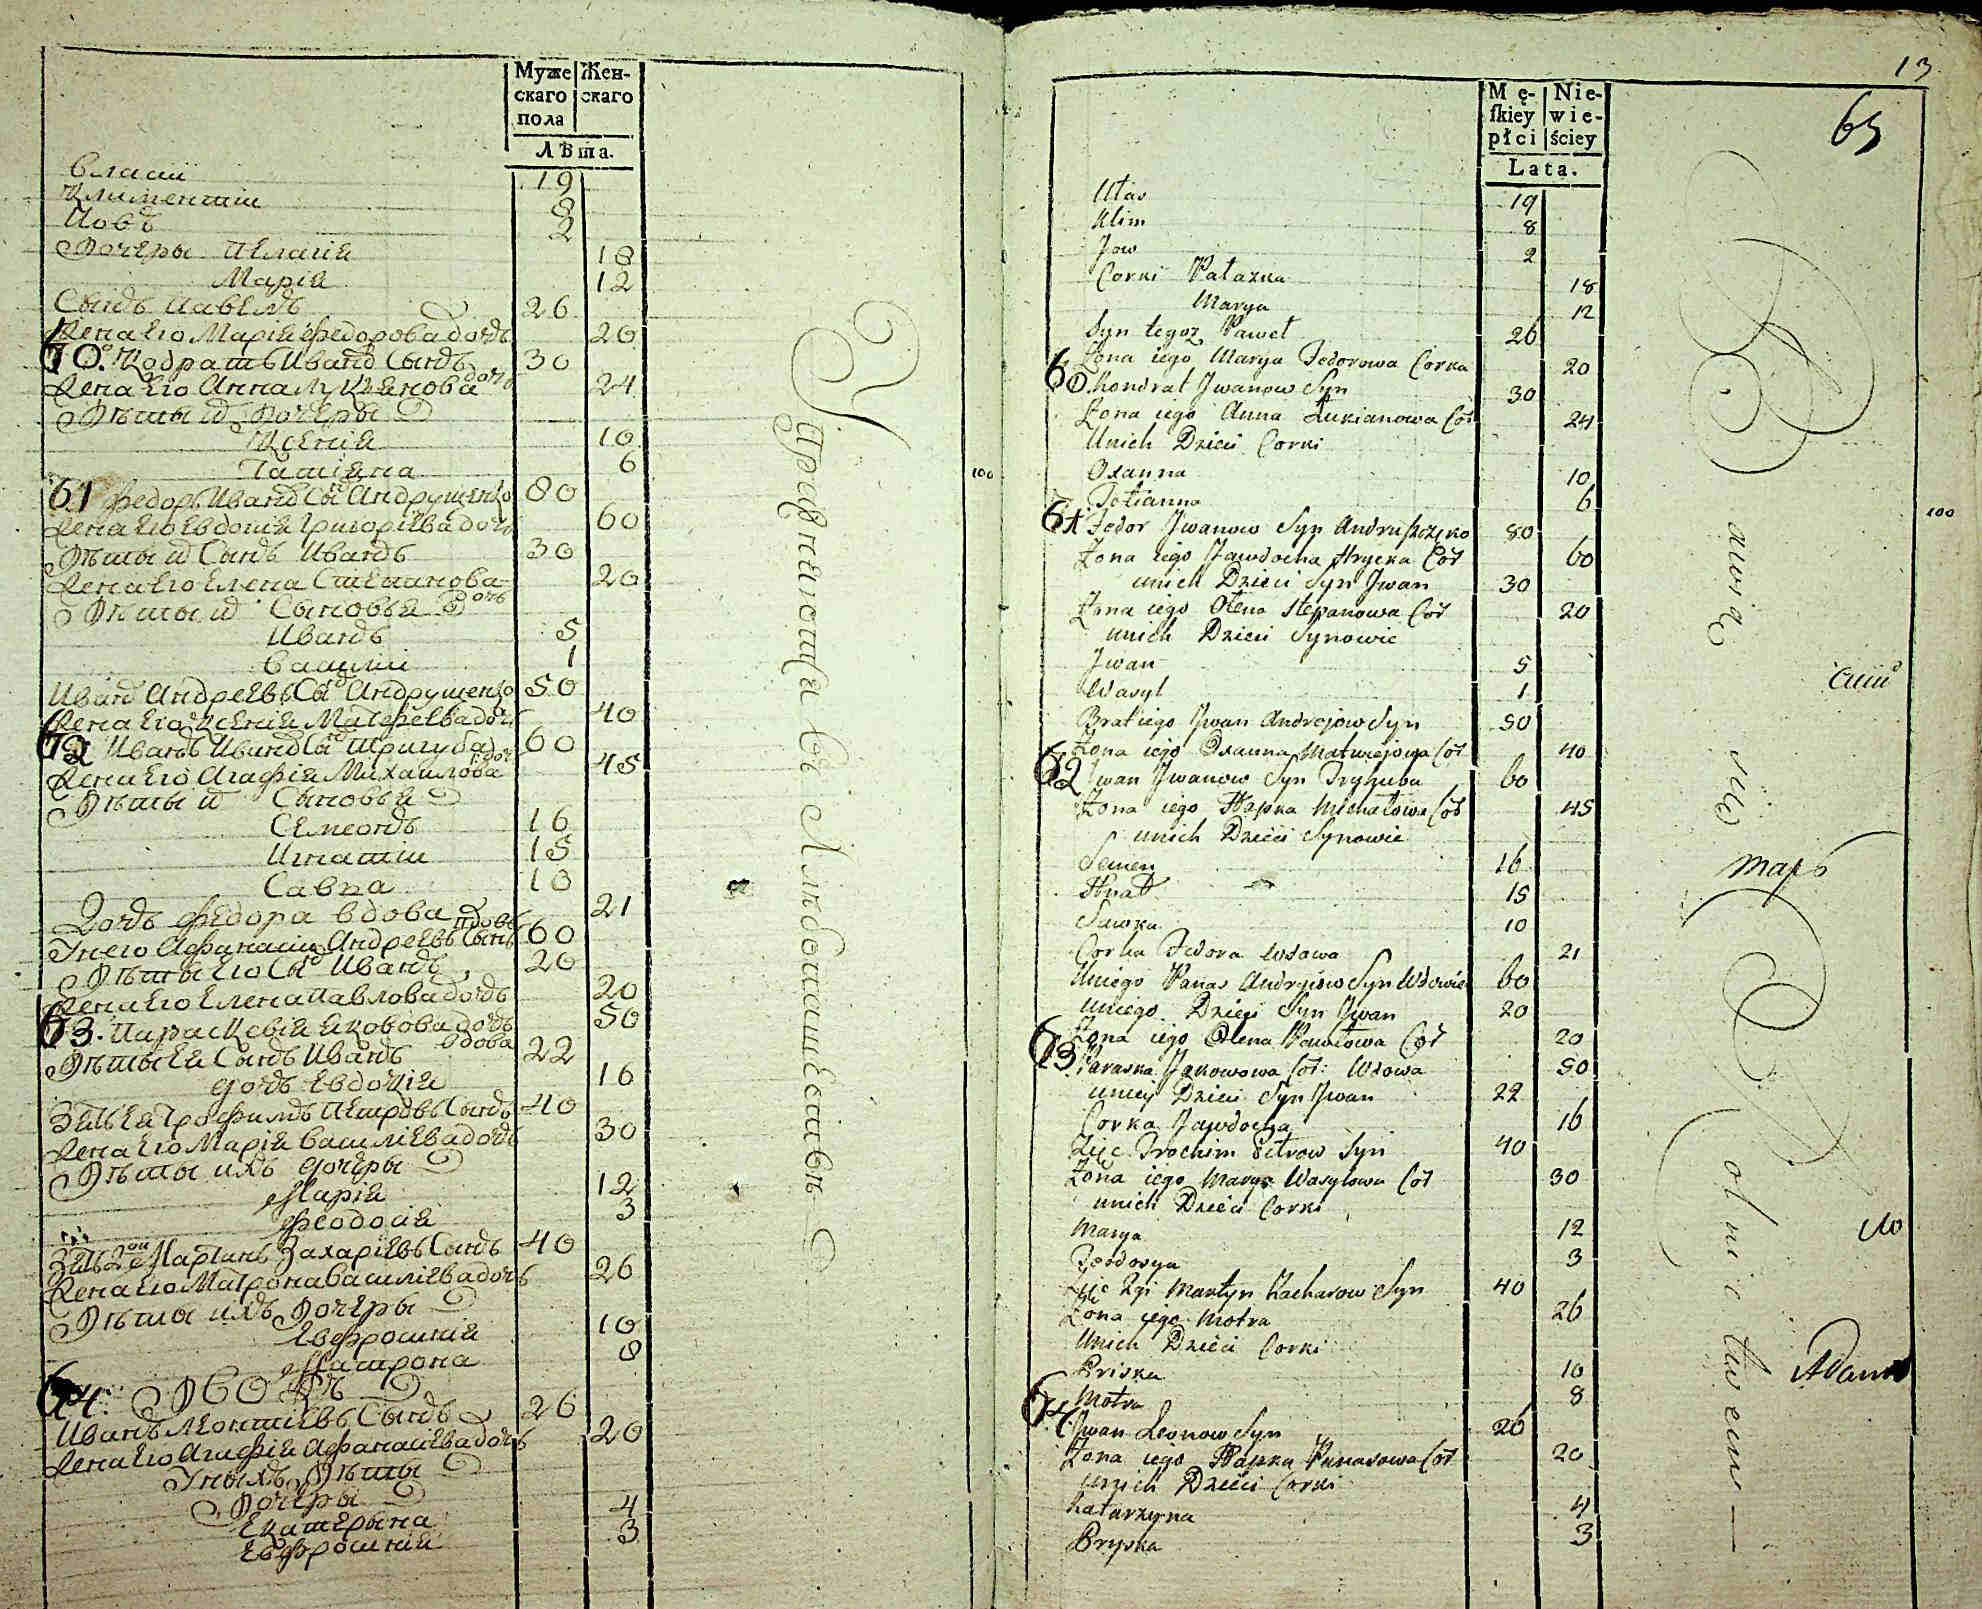 Муже Жен-
скаго скаго
пола
Лѣта.
Власій 19
Климентій 8
Иовъ 2
Дочеры Пелагія 18
Марія 12
Сынъ Павелъ 26
Жена Его Марія Федорова дочь 20
60. Кодратъ Иванъ Сынъ 30
Жена Его Анна Лукянова дочь 24
Дѣты ид Дочеры
Ксенія 10
Татіяна 6
61 Федоръ Иванъ Сынъ Андрущенко 80
Жена Его Евдокія Григоріева дочь 60
Дѣты ид Сынъ Иванъ 30
Жена Его Елена Степанова дочь 20
Дѣты ид Сыновья
Иванъ 5
Василій 1
Иванъ Андреевъ Сынъ Андрущенко 50
Жена Его Ксенія Матфеева дочь 40
62 Иванъ Иванъ Сынъ Тригуба 60
Жена Его Агафія Михаилова дочь 45
Дѣты ид Сыновья
Семеонъ 16
Игнатій 15
Савка 10
Дочь Федора вдова 21
Унего Афанасій Андреевъ Сынъ вдовъ 60
Дѣты Его Сынъ Иванъ 20
Жена Его Елена Павлова дочь 20
63. Параскевія Яковова дочь вдова 50
Дѣты Ея Сынъ Иванъ 22
дочь Евдокія 16
Зять Ея Трофимъ Петровъ Сынъ 40
Жена Его Марія Василіева дочь 30
Дѣты ихъ дочеры
Марія 12
Феодосія 3
Зять 2ой Мартинъ Захаріевъ Сынъ 40
Жена Его Матрона Василіева дочь 26
Дѣты ихъ Дочеры
Евфросинія 10
Матрона 8
64. Дворъ
Иванъ Леонтіевъ Сынъ 26
Жена Его Агафія Афанасіева дочь 20
Уныхъ Дѣты
Дочеры
Екатерына 4
Евфросинія 3
100
13
65
Mę- Nie-
ſkiey wie-
płci ściey
Lata.
Ułas 19
Klim 8
Jow 2
Corki Pałazka 18
Marya 12
Syn tegoz Paweł 26
Zona iego Marya Fedorowa Corka 20
60. Kondrat Jwanow Syn 30
Zona iego Anna Łukianowa Cor 24
Unich Dzieci Corki
Oxanna 10
Tetianna 6
61 Fedor Jwanow Syn Andruszczenko 80
Zona iego Jawdocha Hrycka Cor 60
unich Dzieci Syn Jwan 30
Zona iego Ołena Stepanowa Cor 20
unich Dzieci Synowie
Jwan 5
Wasyl 1
Brat iego Jwan Andrejow Syn 50
Zona iego Oxanna Matwiejowa Cor 40
62 Jwan Jwanow Syn Tryhuba 60
Zona iego Hapka Michałowa Cor 45
unich Dzieci Synowie
Semen 16
Hnat 15
Sawka 10
Corka Fedora Wdowa 21
Uniego Panas Andryiow Syn Wdowiec 60
uniego Dzieci Syn Jwan 20
Zona iego Olena Pawłowa Cor 20
63 Paraska Jakowowa Cor: Wdowa 50
uniey Dzieci Syn Jwan 22
Corka Jawdocha 16
Zięc Trochim Petrow Syn 40
Zona iego Marya Wasylowa Cor 30
unich Dzieci Corki
Marya 12
Feodosya 3
Zięc 2gi Martyn Zacharow Syn 40
Zona iego Motra 26
Unich Dzieci Corki
Priska 10
Motra 8
64. Jwan Leonow Syn 26
Zona iego Hapka Panasowa Cor 20
unich Dzieci Corki
Katarzyna 4
Pryska 3
100
Adam